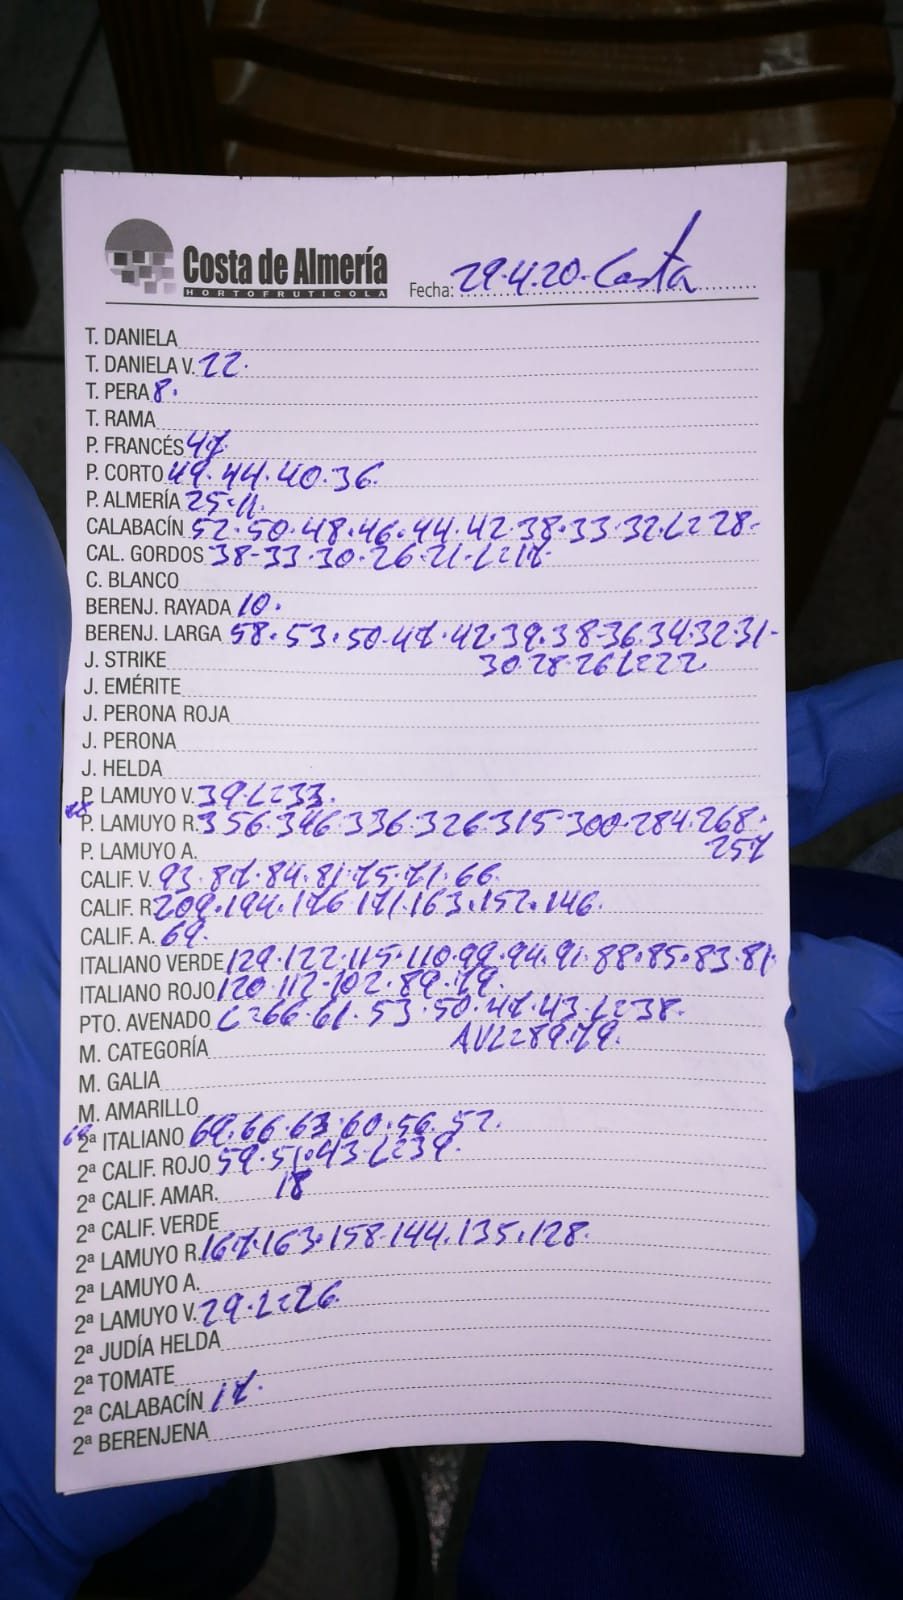 Costa de Almería
HORTOFRUTICOLA
Fecha: 29.4.20. Costa
T. DANIELA
T. DANIELA V. 22.
T. PERA 8.
T. RAMA
P. FRANCÉS 47
P. CORTO 49. 44. 40. 36.
P. ALMERÍA 25. 11.
CALABACÍN 52. 50. 48. 46. 44. 42. 38. 33. 32. L=28-
CAL. GORDOS 38-33. 30. 26. 21. L=17
C. BLANCO
BERENJ. RAYADA 10.
BERENJ. LARGA 58. 53. 50. 47. 42. 39. 38-36. 34. 32. 31-
J. STRIKE 30. 28. 26 L=22
J. EMÉRITE
J. PERONA ROJA
J. PERONA
J. HELDA
P. LAMUYO V. 39. L=33.
P. LAMUYO R. 356. 346. 336. 326. 315-300. 284. 268.
P. LAMUYO A. 257
CALIF. V. 93. 87. 84. 81. 75. 71. 66.
CALIF. R 209. 194. 176. 171. 163. 152. 146.
CALIF. A. 69.
ITALIANO VERDE 129. 122. 115. 110. 99. 94. 91. 88. 85. 83. 81.
ITALIANO ROJO 120. 112-102. 89. 79.
PTO. AVENADO L=66. 61. 53. 50. 47. 43. L=38.
M. CATEGORÍA AVL=89. 79.
M. GALIA
M. AMARILLO
2ª ITALIANO 69. 66. 63. 60. 56. 52.
2ª CALIF. ROJO 59. 51. 43. L=39.
2ª CALIF. AMAR. 18
2ª CALIF. VERDE
2ª LAMUYO R. 167. 163. 158. 144. 135. 128.
2ª LAMUYO A.
2ª LAMUYO V. 29. L=26.
2ª JUDÍA HELDA
2ª TOMATE
2ª CALABACÍN 17.
2ª BERENJENA